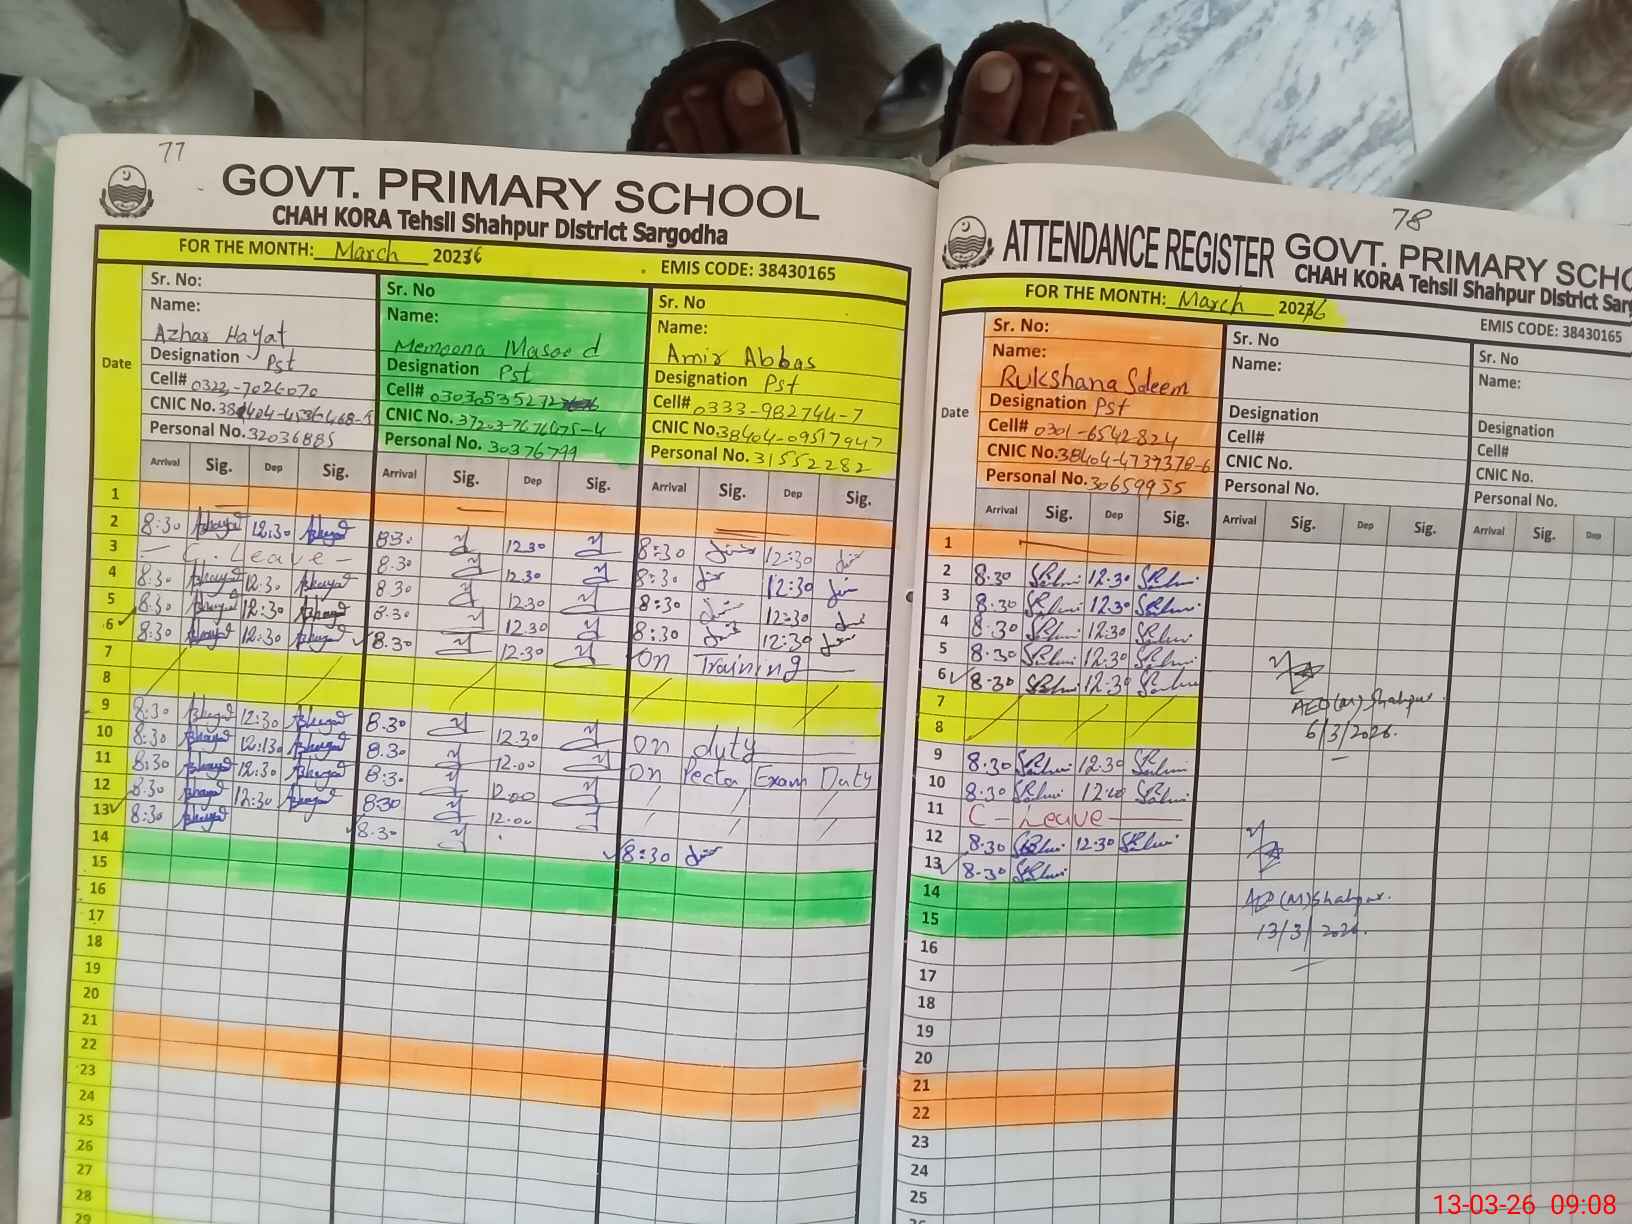 77
GOVT. PRIMARY SCHOOL
CHAH KORA Tehsil Shahpur District Sargodha
FOR THE MONTH: March 2026
EMIS CODE: 38430165
Date
Sr. No:
Name:
Azhar Hayat
Designation Pst
Cell# 0322-7026070
CNIC No.
Personal No. 32036885
Arrival Sig. Dep Sig.
Sr. No
Name:
Memoona Masood
Designation Pst
Cell# 03030535272
CNIC No. 37203-7674475-4
Personal No. 30376799
Arrival Sig. Dep Sig.
Sr. No
Name:
Amir Abbas
Designation Pst
Cell# 0333-982744-7
CNIC No. 38404-09517947
Personal No. 31552282
Arrival Sig. Dep Sig.
1
2 8:30 12:30 8:30 12:30 8:30 12:30
3 C. Leave 8.30 12.30 8:30 12:30
4 8:30 12:30 8.30 12.30 8:30 12:30
5 8:30 12:30 8.30 12.30 8:30 12:30
6 8:30 12:30 8.30 12.30 On Training
7
8
9 8:30 12:30 8.30 12.30 On duty
10 8:30 12:30 8.30 12.00 On Pecta, Exam Duty
11 8:30 12:30 8:30 12.00
12 8:30 12:30 8:30 12.00
13 8:30 8.30 8:30
14
15
16
17
18
19
20
21
22
23
24
25
26
27
28
29
78
ATTENDANCE REGISTER GOVT. PRIMARY SCHO
CHAH KORA Tehsil Shahpur District Sarg
FOR THE MONTH: March 2026
EMIS CODE: 38430165
Date
Sr. No:
Name:
Rukshana Saleem
Designation Pst
Cell# 0301-6542824
CNIC No. 38404-4737378-6
Personal No. 30659955
Arrival Sig. Dep Sig.
Sr. No
Name:
Designation
Cell#
CNIC No.
Personal No.
Arrival Sig. Dep Sig.
Sr. No
Name:
Designation
Cell#
CNIC No.
Personal No.
Arrival Sig. Dep
1
2 8.30 12.30
3 8.30 12.30
4 8.30 12.30
5 8.30 12.30
6 8.30 12.30
7
8
AEO (M) Shahpur
6/3/2026.
9 8.30 12.30
10 8.30
11 C-Leave
12 8.30 12.30
13 8.30
14
15
AEO (M) Shahpur.
13/3/2026.
16
17
18
19
20
21
22
23
24
25
13-03-26 09:08